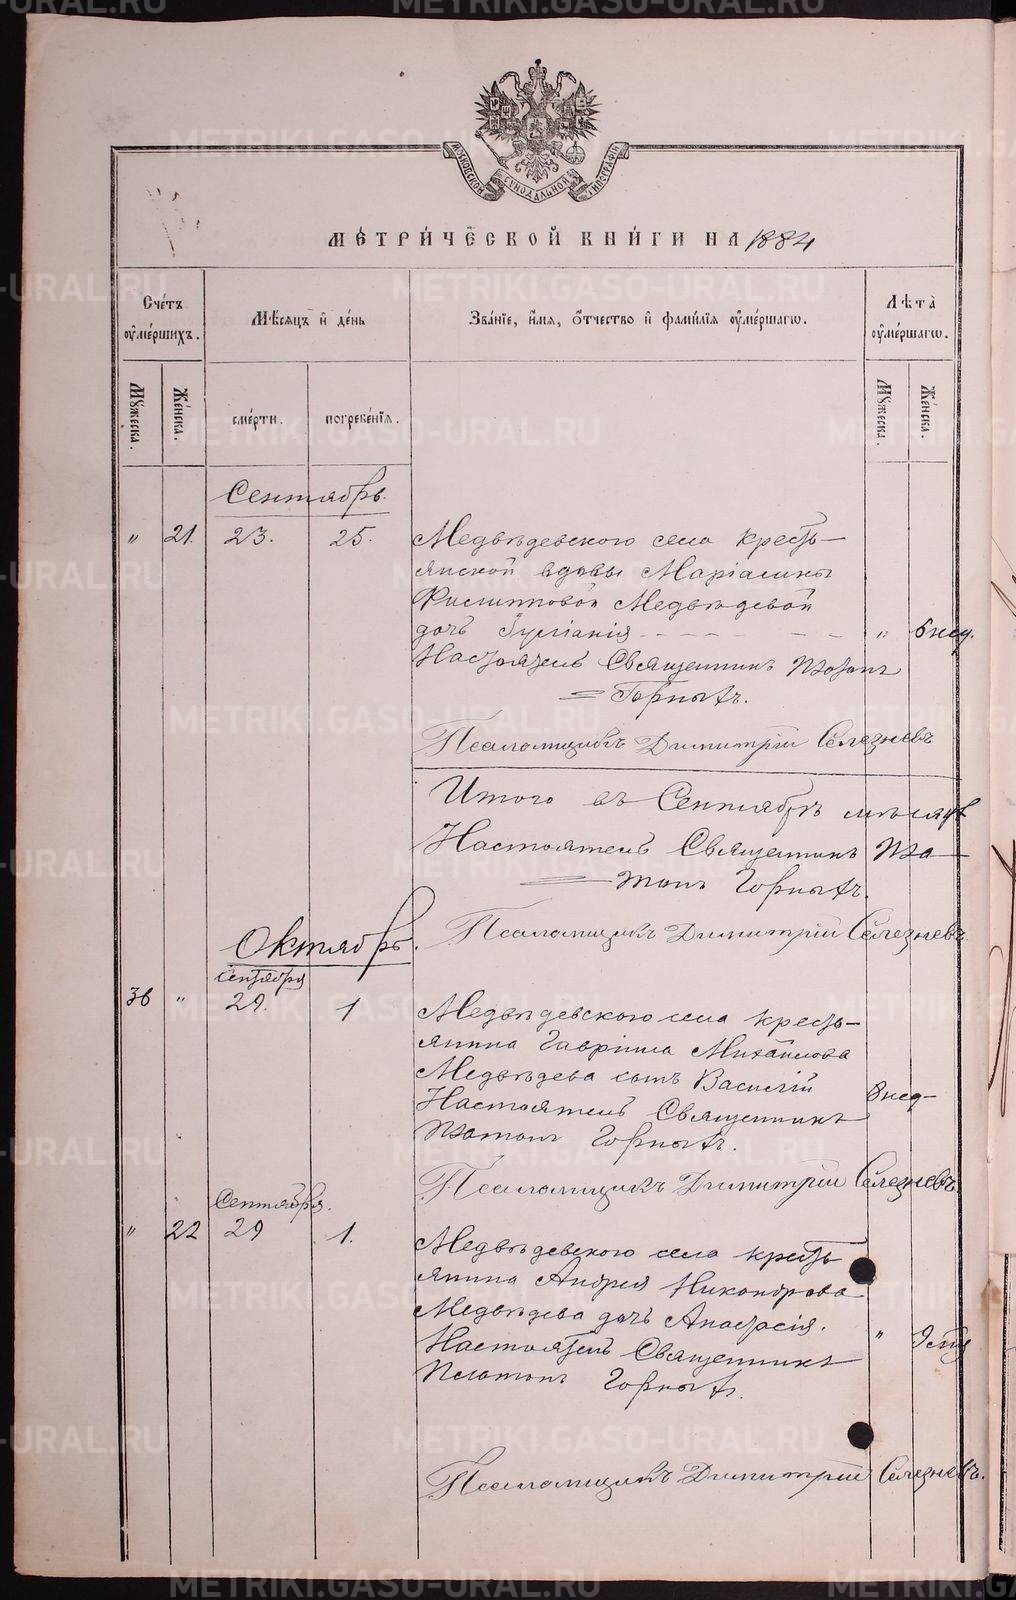 МОСКОВСКОЙ СѴНОДАЛЬНОЙ ТИПОГРАФІИ
МЕТРИЧЕСКОЙ КНИГИ НА 1884
Счетъ ѹмершихъ.
Мѣсяцъ и день
Званїе, имя, отчество и фамилїя ѹмершагѡ.
Лѣта ѹмершагѡ.
Мꙋжеска.
Женска.
смерти.
погребенїя.
Мꙋжеска.
Женска.
Сентябрь.
" 21. 23. 25. Медвѣдевского села кресть-
янской вдовы
Филипповой Медвѣдевой
дочь - - - - - " 6 нед.
Настоятель Священникъ Платонъ
= Горныхъ.
Псаломщикъ Димитрій Селезневъ
Итого въ Сентябрѣ мѣсяцѣ
Настоятель Священникъ Пла-
= тонъ Горныхъ.
Псаломщикъ Димитрій Селезневъ.
Октябрь.
Сентября
36 " 29. 1 Медвѣдевского села кресть-
янина Гавріила Михайлова
Медвѣдева сынъ Василій
8 нед-
Настоятель Священникъ
Платонъ Горныхъ.
Псаломщикъ Димитрій Селезневъ.
Сентября.
" 22 29 1. Медвѣдевского села кресть
янина Андрея Никандрова
Медвѣдева дочь Анастасія. "
Настоятель Священникъ
Платонъ Горныхъ.
Псаломщикъ Димитрій Селезневъ.
METRIKI.GASO-URAL.RU